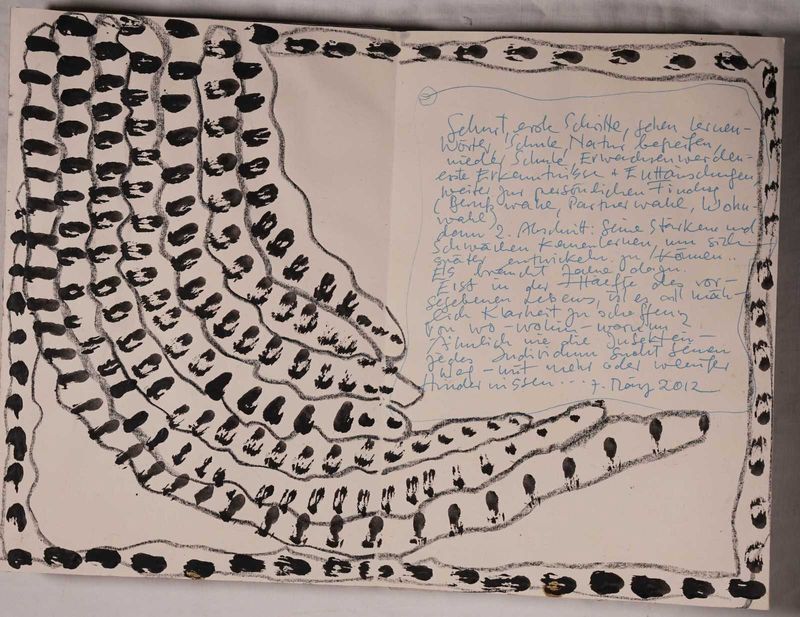 Geburt, erste Schritte, gehen lernen-
Worte, Schule, Natur begreifen
wieder Schule, Erwachsenwerden-
erste Erkenntnisse + Enttäuschungen,
weiter zur persönlichen Findung
(Berufswahl, Partnerwahl, Wohn-
wahl)
dann 2. Abschnitt: seine Stärken und
Schwächen kennenlernen, um sich
später entwickeln zu können..
Es braucht Jahre
Erst in der Hälfte des vor-
gegebenen Lebens, ist es allmäh-
lich Klarheit zu schaffen:
von wo - wohin - warum?
Ähnlich wie die Insekten-
jedes Individuum sucht seinen
Weg - mit mehr oder weniger
Hindernissen... 7. März 2012